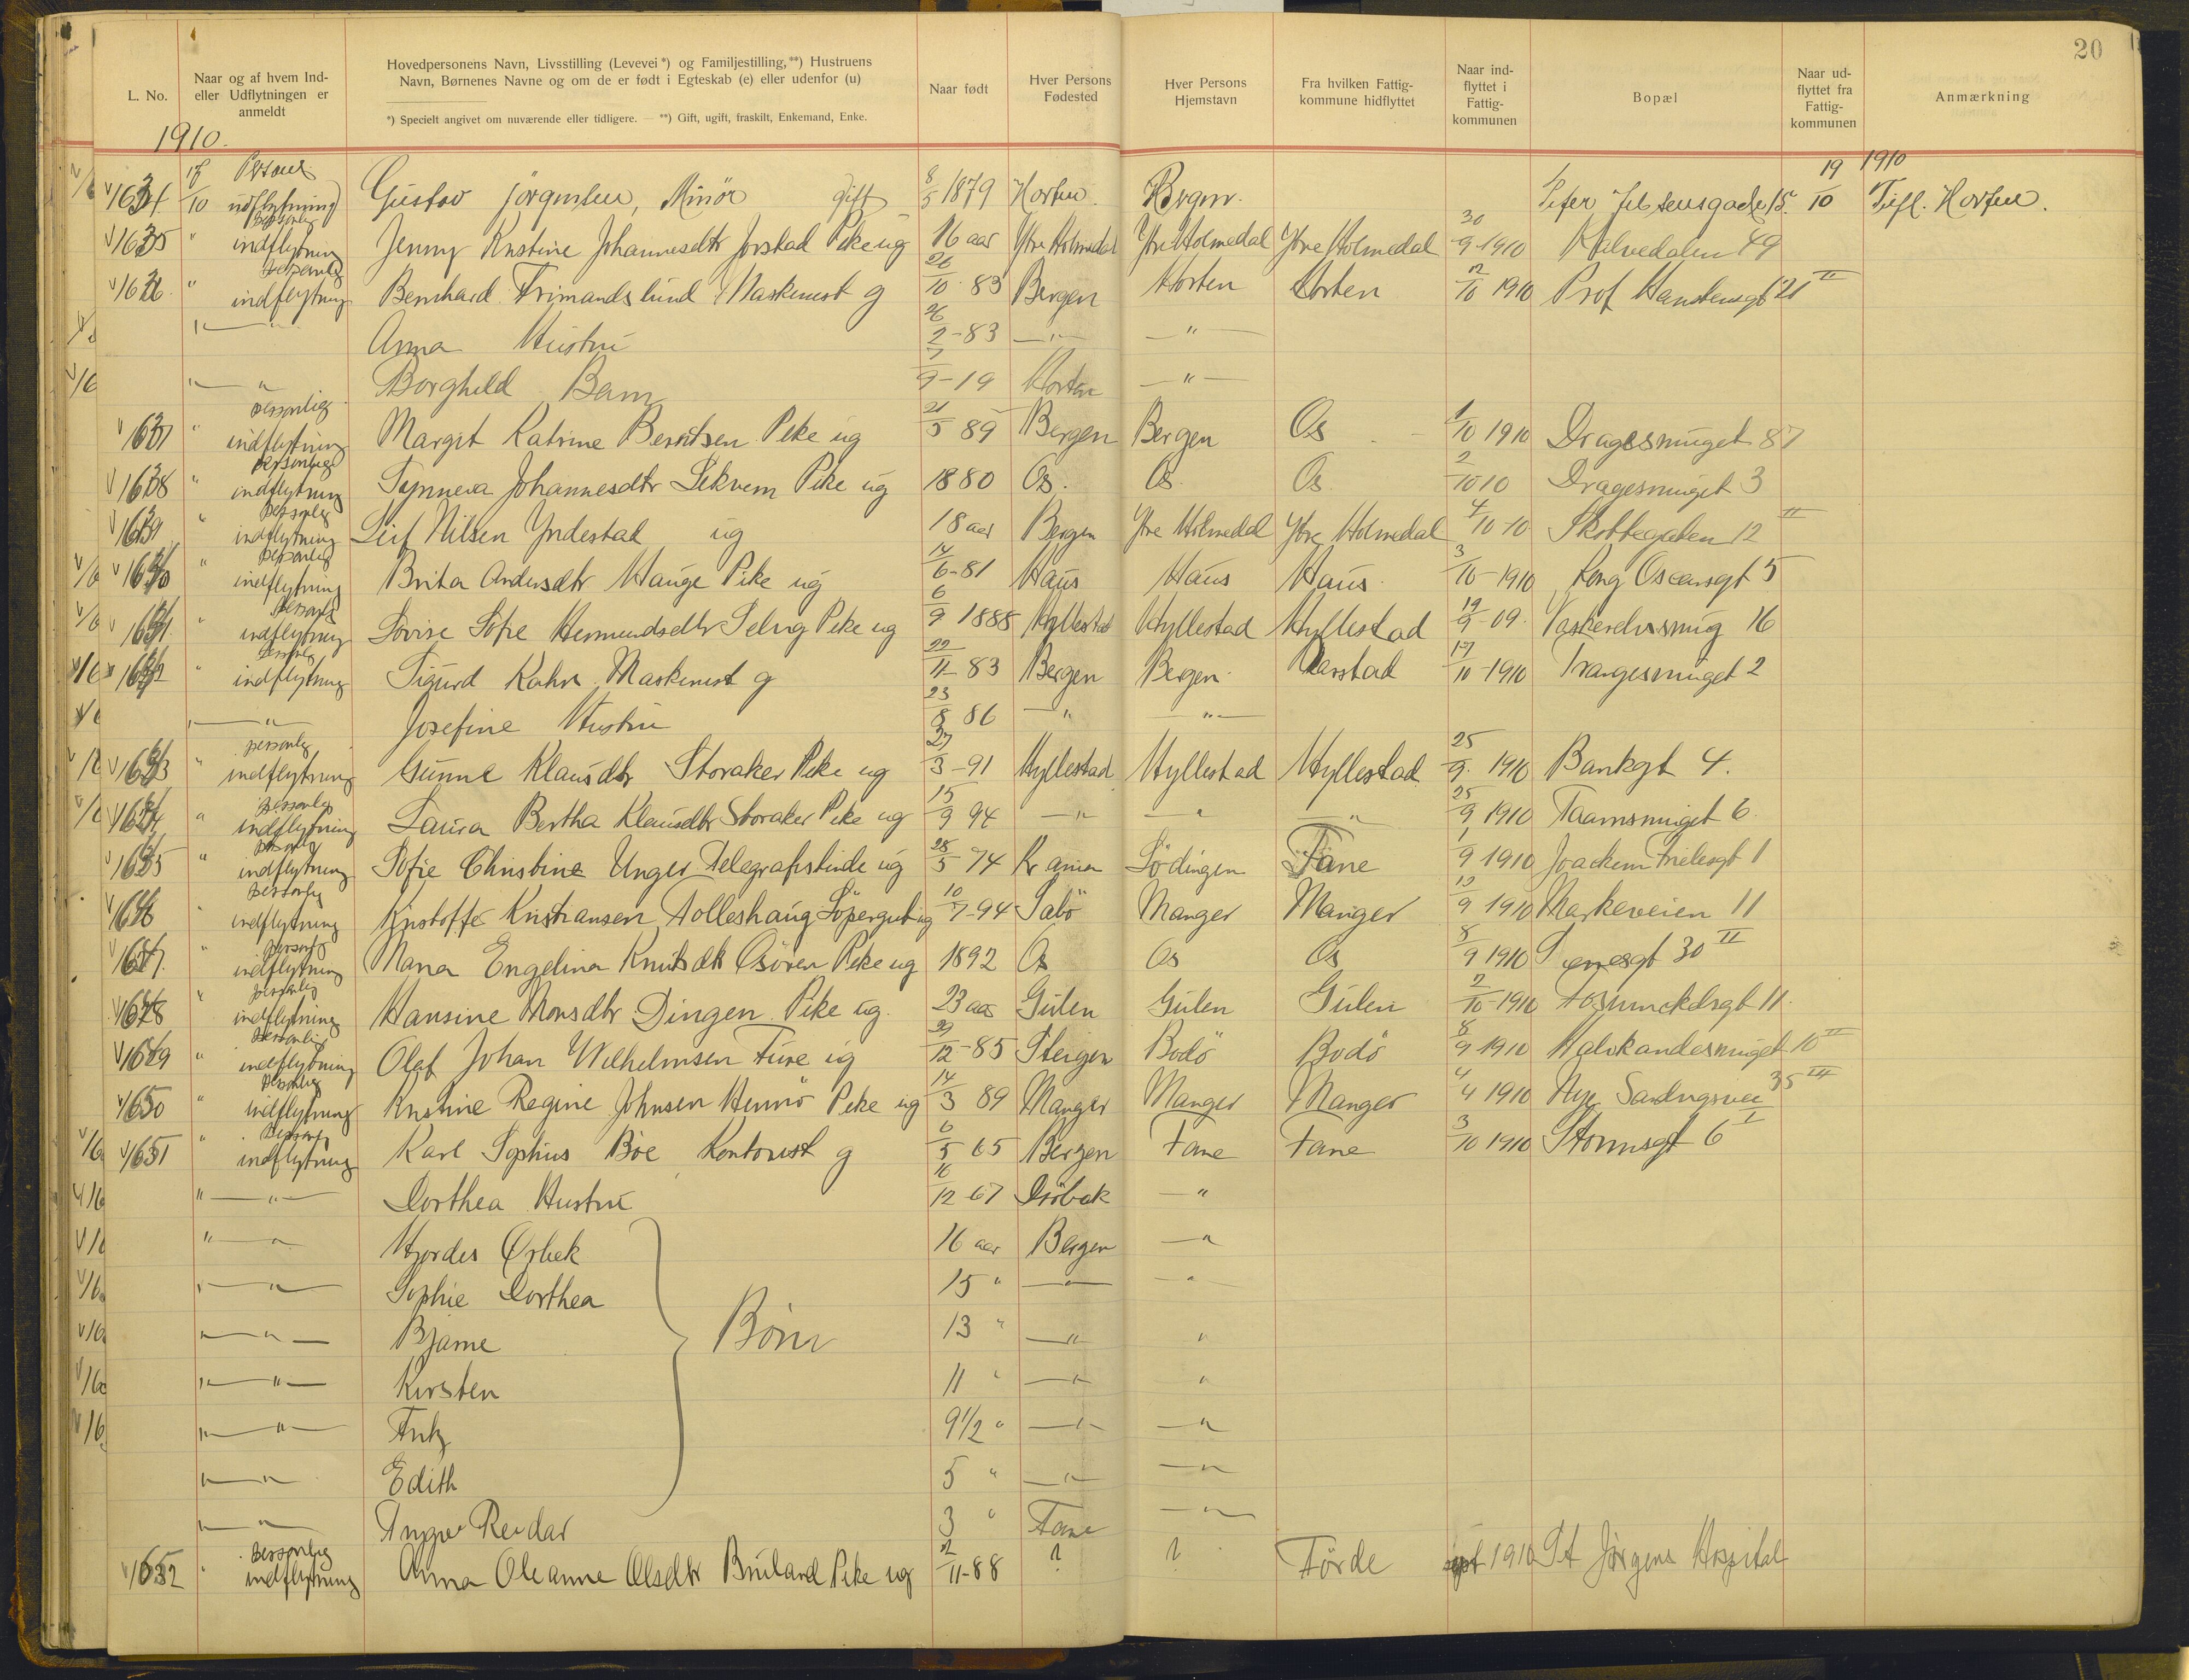 20
L. No.
Naar og af hvem Ind- eller Udflytningen er anmeldt
Hovedpersonens Navn, Livsstilling (Levevei*) og Familjestilling,**) Hustruens Navn, Børnenes Navne og om de er født i Egteskab (e) eller udenfor (u)
*) Specielt angivet om nuværende eller tidligere. — **) Gift, ugift, fraskilt, Enkemand, Enke.
Naar født
Hver Persons Fødested
Hver Persons Hjemstavn
Fra hvilken Fattigkommune hidflyttet
Naar indflyttet i Fattigkommunen
Bopæl
Naar udflyttet fra Fattigkommunen
Anmærkning
1910.
1634 18/10 Personl. udflytning Gustav Jörgensen, Minör gift 8/5 1879 Horten Bergen 15. 19/10 1910 Tilfl. Horten.
1635 " personlig indflytning Jenny Kristine Johannesdtr Jorstad Pike ug 16 aar Ytre Holmedal Ytre Holmedal Ytre Holmedal 30/9 1910 Kalvedalen 49
1636 " personlig indflytning Bernhard Frimandslund Maskinist g 26/10 83 Bergen Horten Horten 12/10 1910 Prof Hansteensgt 21 II
" Anna Hustru 26/2-83 " "
" Borghild Barn 7/9-19 Horten "
1637 " personlig indflytning Margit Katrine Berntsen Pike ug 21/5 89 Bergen Bergen Os 1/10 1910 Dragesmuget 87
1638 " personlig indflytning Synneva Johannesdtr Lekvem Pike ug 1880 Os. Os. Os 2/10 10 Dragesmuget 3
1639 " personlig indflytning Leif Nilsen Yndestad ug 18 aar Bergen Ytre Holmedal Ytre Holmedal 4/10-10 Skottegaten 12 II
1640 " personlig indflytning Brita Andersdtr Hauge Pike ug 14/6-81 Haus Haus Haus 3/10-1910 Kong Oscarsgt 5
1641 " personlig indflytning Lovise Sofie Hermundsdtr Pike ug 6/9 1888 Hyllestad Hyllestad Hyllestad 19/9-09. Vaskerelvsmug 16
1642 personlig indflytning Sigurd Kahrs Maskinist g 22/11-83 Bergen Bergen Harstad 17/10-1910 Trangesmuget 2
" Josefine Hustru 23/8 86 " "
1643 " personlig indflytning Gunne Klausdtr Storaker Pike ug 27/3-91 Hyllestad Hyllestad Hyllestad 25/9. 1910 Bankgt 4.
1644 " personlig indflytning Laura Bertha Klausdtr Storaker Pike ug 15/9 94 " " " 25/9 1910 Taarnsmuget 6
1645 " personlig indflytning Sofie Christine Unger Telegrafistinde ug 28/5 74 Kr ania Lödingen Fane 1/9 1910 Joachim Frielesgt 1
1646 " personlig indflytning Kristoffer Kristiansen Tolleshaug Löpergut ug 10/7-94 Sabö Manger Manger 19/9 1910 Markeveien 11
1647 " personlig indflytning Engelina Knutsdtr Osören Pike ug 1892 Os Os Os 8/9 1910 30 II
1648 " personlig indflytning Hansine Monsdtr Dingen Pike ug. 23 aar Gulen Gulen Gulen 2/10-1910 11
1649 " personlig indflytning Olaf Johan Wilhelmsen Fure ug 29/12-85 Steigen Bodö Bodö 8/9 1910 10 II
1650 " personlig indflytning Kristine Regine Johnsen Hernnö Pike ug 14/3 89 Manger Manger Manger 4/4 1910 Nye Sandvigsvei 35 III
1651 " personlig indflytning Karl Sophus Böe Kontorist g 6/5 65 Bergen Fane Fane 3/10 1910 Stormsgt 6 I
" " Dorthea Hustru 16/12-67 Dröbak "
" " Hjordis Örbek 16 aar Bergen "
" " Sophie Dorthea 15 " " "
" " Bjarne Börn 13 " " "
" " Kirsten 11 " " "
" " Fritz 9 1/2 " " "
" " Edith 5 " " "
" " Yngve Reidar 3 " Fane "
1652 " personlig indflytning Anna Oleanne Olsdtr Bruland Pike ug 2/11-88 ? ? Förde sept 1910 St Jörgens Hospital